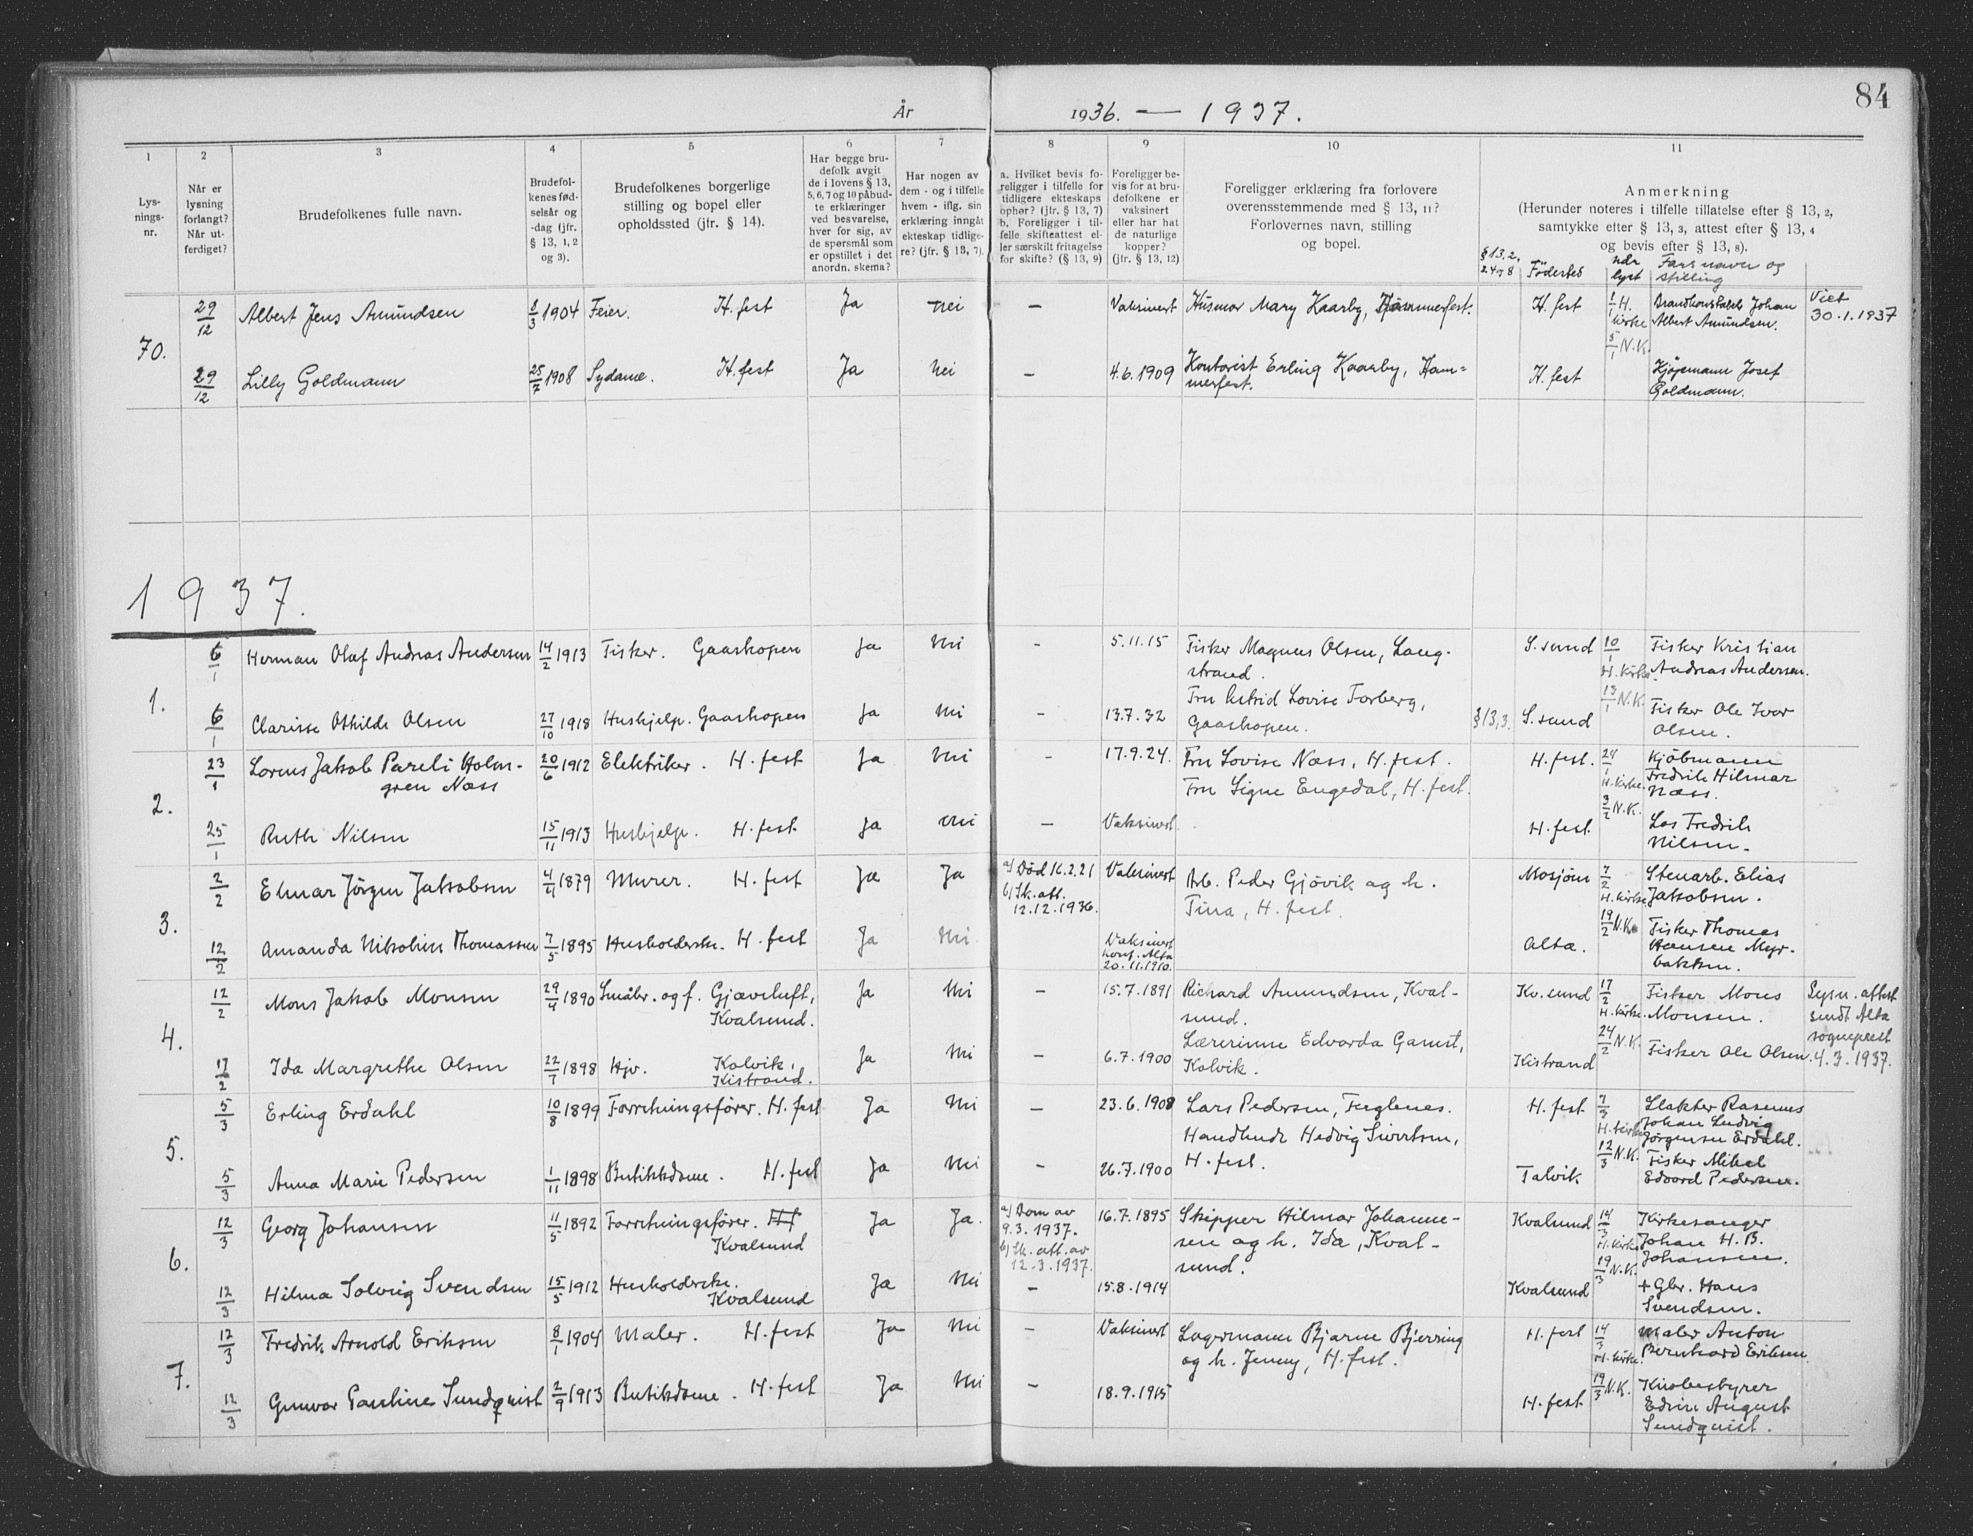 84
År 1936. — 1937.
1 2 3 4 5 6 7 8 9 10 11
Lys-
nings-
nr.
Når er
lysning
forlangt?
Når ut-
ferdiget?
Brudefolkenes fulle navn.
Brudefol-
kenes fød-
selsår og
-dag (jfr.
§ 13, 1, 2
og 3).
Brudefolkenes borgerlige
stilling og bopel eller
opholdssted (jfr. § 14).
Har begge bru-
defolk avgit
de i lovens § 13,
5, 6, 7 og 10 påbud-
te erklæringer
ved besvarelse,
hver for sig, av
de spørsmål som
er opstillet i det
anordn. skema?
Har nogen av
dem - og i tilfelle
hvem - iflg. sin
erklæring inngått
ekteskap tidlige-
re? (jfr. § 13, 7).
a. Hvilket bevis fo-
religger i tilfelle for
tidligere ekteskaps
ophør? (jfr. § 13, 7)
b. Foreligger i til-
felle skifteattest el-
ler særskilt fritagelse
for skifte? (§ 13, 9)
Foreligger be-
vis for at bru-
defolkene er
vaksinert
eller har hat
de naturlige
kopper?
(jfr. § 13, 12)
Foreligger erklæring fra forlovere
overensstemmende med § 13, 11?
Forlovernes navn, stilling
og bopel.
Anmerkning
(Herunder noteres i tilfelle tillatelse efter § 13, 2,
samtykke efter § 13, 3, attest efter § 13, 4
og bevis efter § 13, 8).
§ 13, 2,
24 og 8 Fødested når lyst Fars navn og stilling
70. 29/12 Albert Jens Amundsen 8/3 1904 Feier. H.fest Ja nei — Vaksinert Husmor Mary Kaarby, Hammerfest. H.fest 1/1 H. kirke 5/1 N.K. Johan Albert Amundsen. Viet 30.1.1937
29/12 Lilly Goldmann 25/7 1908 Sydame. H.fest Ja nei — 4.6.1909 Kontorist Erling Kaarby, Ham=
merfest. H.fest Kjøpmann Josef
Goldmann.
1937.
1. 6/1 Herman Olaf Andreas Andersen 14/2 1913 Fisker. Gaashopen Ja Nei - 5.11.15 Fisker Magnus Olsen, Lang-
strand. S.sund 10/1 H.kirke. 13/1 N.K. Fisker Kristian
Andreas Andersen.
6/1 Clarisse Othilde Olsen 27/10 1918 Hushjelp. Gaashopen Ja Nei - 13.7.32 Fru Astrid Lovise Torberg,
Gaashopen. § 13,3. S.sund Fisker Ole Ivar
Olsen.
2. 23/1 Lorens Jakob Pareli Holm-
gren Næss 20/6 1912 Elektriker. H.fest Ja Nei - 17.9.24. Fru Lovise Næss, H.fest. H.fest. 24/1 H.kirke. 3/2 N.K. Kjøbmann
Fredrik Hilmar
Næss.
Fru Signe Engedal, H.fest.
25/1 Ruth Nilsen 15/11 1913 Hushjelp. H.fest Ja Nei — Vaksinert. H.fest. Los Fredrik
Nilsen.
3. 2/2 Elmar Jørgen Jakobsen 4/4 1879 Murer. H.fest Ja Ja a) Død 16.2.21
b) Sk.att.
12.12.1936. Vaksinert Arb. Peder Gjövik og h.
Tina, H.fest. Mosjøen 7/2 H.kirke 19/2 N.K. Stenarb. Elias
Jakobsen.
12/2 Amanda Nikoline Thomassen 7/5 1895 Husholderske. H.fest Ja Nei Vaksinert
konf. Alta
20.11.1910. Alta. Fisker Thomas
Hansen Myr-
bakken.
4. 12/2 Mons Jakob Monsen 29/4 1890 Småbr. og f. Gjæveluft,
Kvalsund. Ja Nei — 15.7.1891 Richard Amundsen, Kval-
sund. Kv.sund 17/2 H.kirke. 24/2 N.K. Fisker Mons
Monsen. Lysn.attest
sendt Alta
sogneprest
4.3.1937.
17/2 Ida Margrethe Olsen 22/7 1898 Hjv. Kolvik,
Kistrand. Ja Nei — 6.7.1900 Lærerinne Edvarda Gamst,
Kolvik. Kistrand Fisker Ole Olsen.
5. 5/3 Erling Erdahl 10/8 1899 Forretningsfører. H.fest Ja Nei — 23.6.1908 Lars Pedersen, Fuglenes. H.fest 7/3 H.kirke 12/3 N.K. Slakter Rasmus
Johan Ludvig
Jørgensen Erdahl.
5/3 Anna Marie Pedersen 1/11 1898 Butikkdame. H.fest Ja Nei — 26.7.1900 Handlende Hedvig Sivertsen,
H.fest. Talvik Fisker Mikal
Edvard Pedersen.
6. 12/3 Georg Johansen 11/5 1892 Forretningsfører. Hf
Kvalsund Ja Ja. a) Dom av
9.3.1937.
b) Sk.att.av
12-3.1937. 16.7.1895 Skipper Hilmar Johanne-
sen og h. Ida, Kval-
sund. Kvalsund 14/3 H.kirke 19/3 N.K. Kirkesanger
Johan H.B.
Johansen.
12/3 Hilma Solveig Svendsen 15/5 1912 Husholderske.
Kvalsund Ja Nei — 15.8.1914 Kvalsund + Gbr. Hans
Svendsen.
7. 12/3 Fredrik Arnold Eriksen 8/1 1904 Maler. H.fest Ja Nei — Vaksinert Lagermann Bjarne Bjerring
og h. Jenny, H.fest. H.fest 14/3 H.kirke. 19/3 N.K. Maler Anton
Bernhard Eriksen.
12/3 Gunvor Pauline Sundquist 2/9 1913 Butikdame. H.fest Ja Nei — 18.9.1915 H.fest Edvin August
Sundquist.